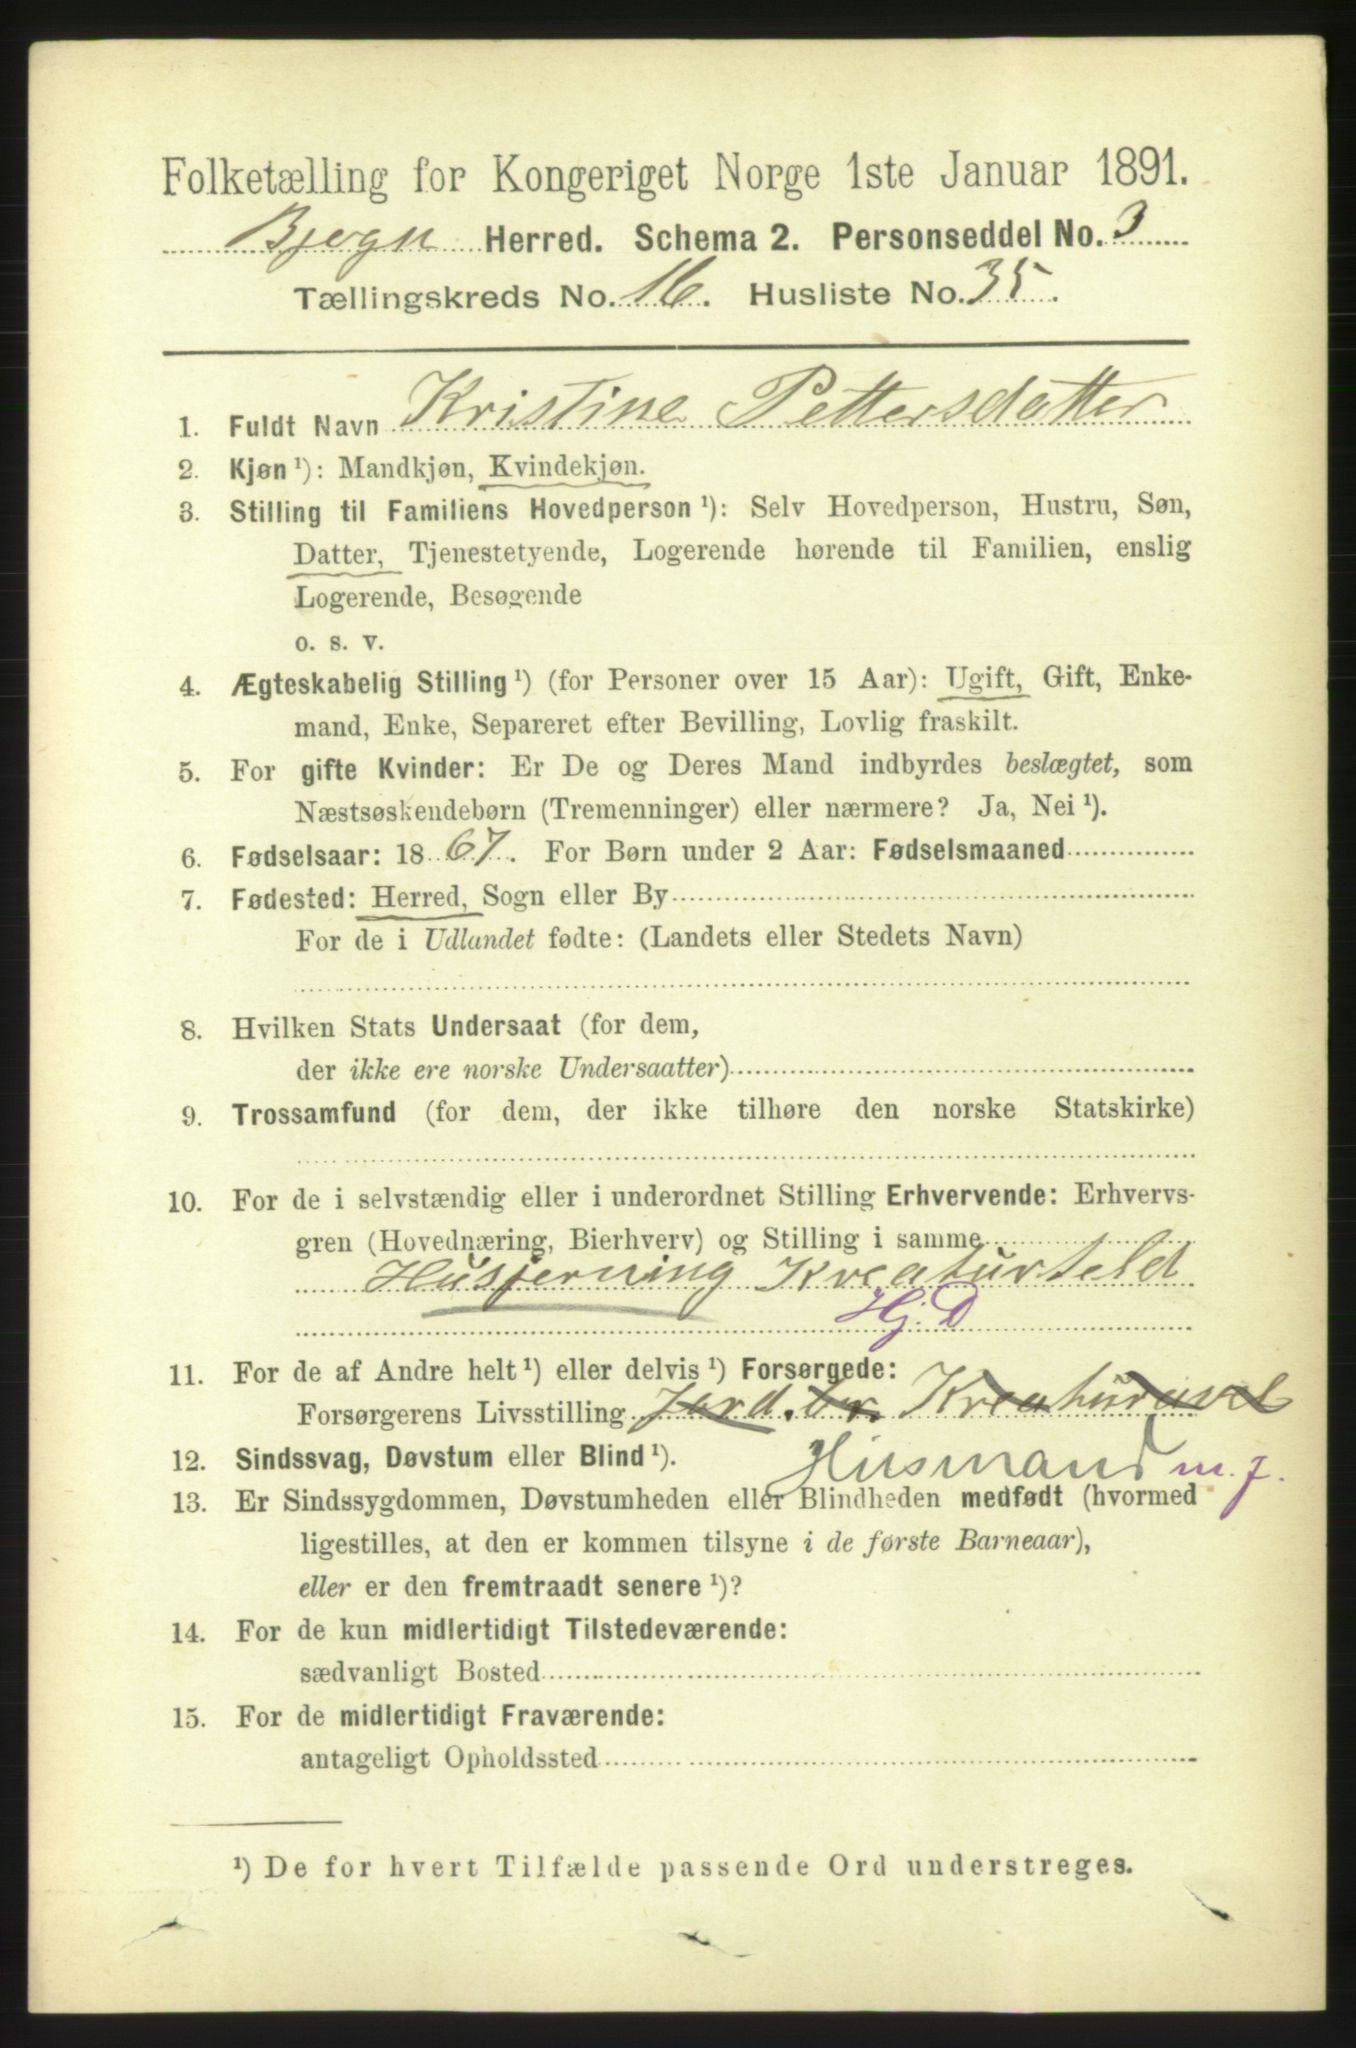 Folketælling for Kongeriget Norge 1ste Januar 1891.
Bjugn Herred. Schema 2. Personseddel No. 3
Tællingskreds No. 16. Husliste No. 35.
1. Fuldt Navn Kristine Pettersdatter
2. Kjøn ¹): Mandkjøn, Kvindekjøn.
3. Stilling til Familiens Hovedperson ¹): Selv Hovedperson, Hustru, Søn,
Datter, Tjenestetyende, Logerende hørende til Familien, enslig
Logerende, Besøgende
o. s. v.
4. Ægteskabelig Stilling ¹) (for Personer over 15 Aar): Ugift, Gift, Enke-
mand, Enke, Separeret efter Bevilling, Lovlig fraskilt.
5. For gifte Kvinder: Er De og Deres Mand indbyrdes beslægtet, som
Næstsøskendebørn (Tremenninger) eller nærmere? Ja, Nei ¹).
6. Fødselsaar: 1867. For Børn under 2 Aar: Fødselsmaaned
7. Fødested: Herred, Sogn eller By
For de i Udlandet fødte: (Landets eller Stedets Navn)
8. Hvilken Stats Undersaat (for dem,
der ikke ere norske Undersaatter)
9. Trossamfund (for dem, der ikke tilhøre den norske Statskirke)
10. For de i selvstændig eller i underordnet Stilling Erhvervende: Erhvervs-
gren (Hovednæring, Bierhverv) og Stilling i samme
Husjerning Kreaturteld
Hj. D
11. For de af Andre helt ¹) eller delvis ¹) Forsørgede:
Forsørgerens Livsstilling Jord. br. Kreaturavl
12. Sindssvag, Døvstum eller Blind ¹). Husmand m. j.
13. Er Sindssygdommen, Døvstumheden eller Blindheden medfødt (hvormed
ligestilles, at den er kommen tilsyne i de første Barneaar),
eller er den fremtraadt senere ¹)?
14. For de kun midlertidigt Tilstedeværende:
sædvanligt Bosted
15. For de midlertidigt Fraværende:
antageligt Opholdssted
¹) De for hvert Tilfælde passende Ord understreges.